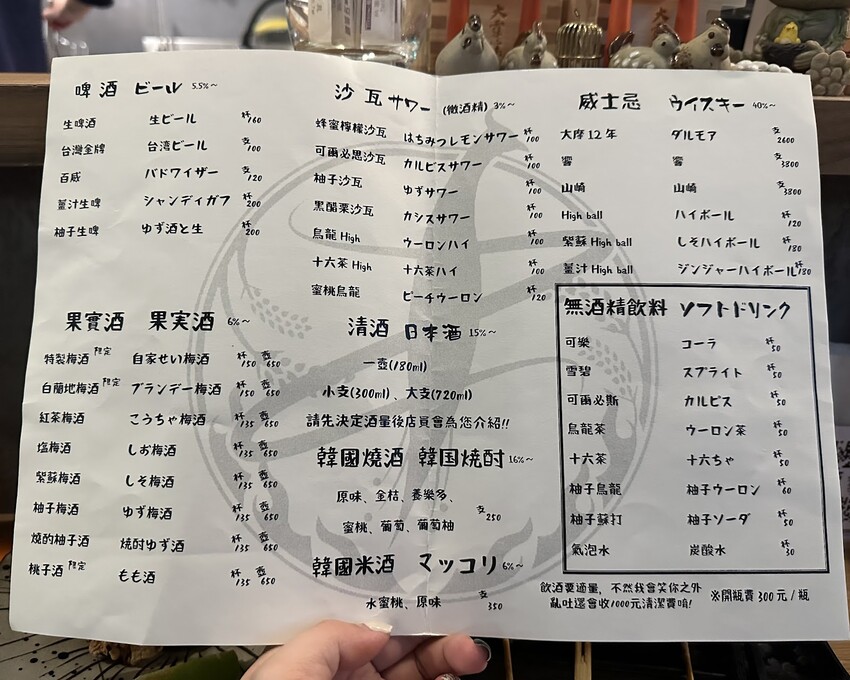 啤酒 ビール 5.5%~
生啤酒 生ビール 杯/160
台灣金牌 台湾ビール 支/100
百威 バドワイザー 支/120
薑汁生啤 シャンディガフ 杯/200
柚子生啤 ゆず酒と生 杯/200
果實酒 果実酒 6%~
特製梅酒 限定 自家せい梅酒 杯/150 壺/650
白蘭地梅酒 限定 ブランデー梅酒 杯/150 壺/650
紅茶梅酒 こうちゃ梅酒 杯/135 壺/650
塩梅酒 しお梅酒 杯/135 壺/650
紫蘇梅酒 しそ梅酒 杯/135 壺/650
柚子梅酒 ゆず梅酒 杯/135 壺/650
燒酌柚子酒 焼酎ゆず酒 杯/135 壺/650
桃子酒 限定 もも酒 杯/135 壺/650
沙瓦 サワー (微酒精) 3%~
蜂蜜檸檬沙瓦 はちみつレモンサワー 杯/100
可爾必思沙瓦 カルピスサワー 杯/100
柚子沙瓦 ゆずサワー 杯/100
黑醋栗沙瓦 カシスサワー 杯/100
烏龍 High ウーロンハイ 杯/100
十六茶 High 十六茶ハイ 杯/100
蜜桃烏龍 ピーチウーロン 杯/120
清酒 日本酒 15%~
一壺(180ml)
小支(300ml)、大支(720ml)
請先決定酒量後店員會為您介紹!!
韓國燒酒 韓国焼酎 16%~
原味、金桔、養樂多、
蜜桃、葡萄、葡萄柚 支/250
韓國米酒 マッコリ 6%~
水蜜桃、原味 支/350
威士忌 ウイスキー 40%~
大摩 12 年 ダルモア 支/2600
響 響 支/3800
山崎 山崎 支/3800
High ball ハイボール 杯/120
紫蘇 High ball しそハイボール 杯/180
薑汁 High ball ジンジャーハイボール 杯/180
無酒精飲料 ソフトドリンク
可樂 コーラ 杯/50
雪碧 スプライト 杯/50
可爾必斯 カルピス 杯/50
烏龍茶 ウーロン茶 杯/50
十六茶 十六ちゃ 杯/50
柚子烏龍 柚子ウーロン 杯/60
柚子蘇打 柚子ソーダ 杯/50
氣泡水 炭酸水 杯/30
飲酒要適量, 不然我會笑你之外
亂吐還會收1000元清潔費唷!
※開瓶費 300 元 / 瓶